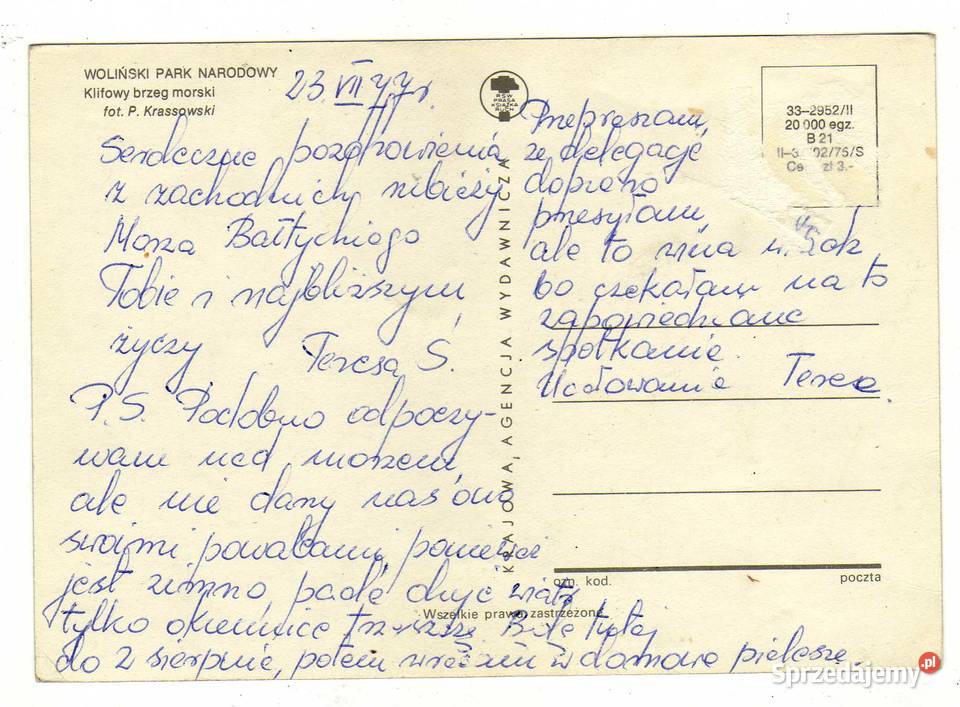 WOLIŃSKI PARK NARODOWY
Klifowy brzeg morski
fot. P. Krassowski
23 VII 77 r.
Serdeczne pozdrowienia
z zachodnich rubieży
Morza Bałtyckiego
Tobie i najbliższym
życzy Teresa Ś.
P.S. Podobno odpoczy-
wam nad morzem,
ale nie darzy nas ono
swoimi powabami, ponieważ
jest zimno, pada, dmie wiatr
tylko okiennice trzeszczą. Będę tutaj
do 2 sierpnia, potem wracam w domowe pielesze.
RSW
PRASA
KSIĄŻKA
RUCH
KRAJOWA AGENCJA WYDAWNICZA
Przepraszam,
że delegację
dopiero
przesyłam,
ale to wina
bo czekałam na to
zapowiedziane
spotkanie.
Ucałowania Teresa
33-2952/II
20 000 egz.
B 21
02/76/S
zł 3.-
ozn. kod. poczta
Wszelkie prawa zastrzeżone
Sprzedajemy.pl